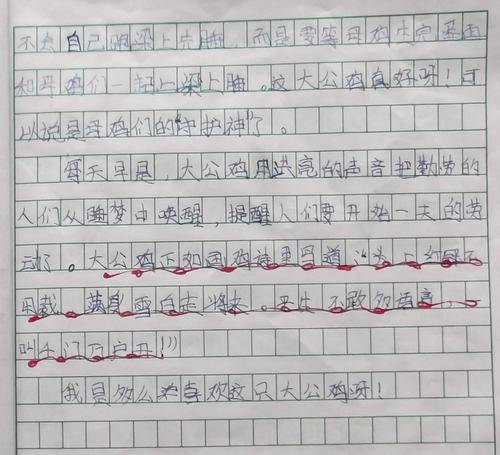 不去自己跑梁上先睡，而是要等母鸡生完蛋后
和母鸡们一起上梁上睡。这大公鸡真好呀！可
以说是母鸡们的“守护神”了。
每天早晨，大公鸡用洪亮的声音把勤劳的
人们从睡梦中唤醒，提醒人们要开始一天的劳
动了。大公鸡正如画鸡诗里写道：“头上红冠不
用裁，满身雪白走将来。平生不敢轻言语，一
叫千门万户开！”
我是多么喜欢这只大公鸡呀！